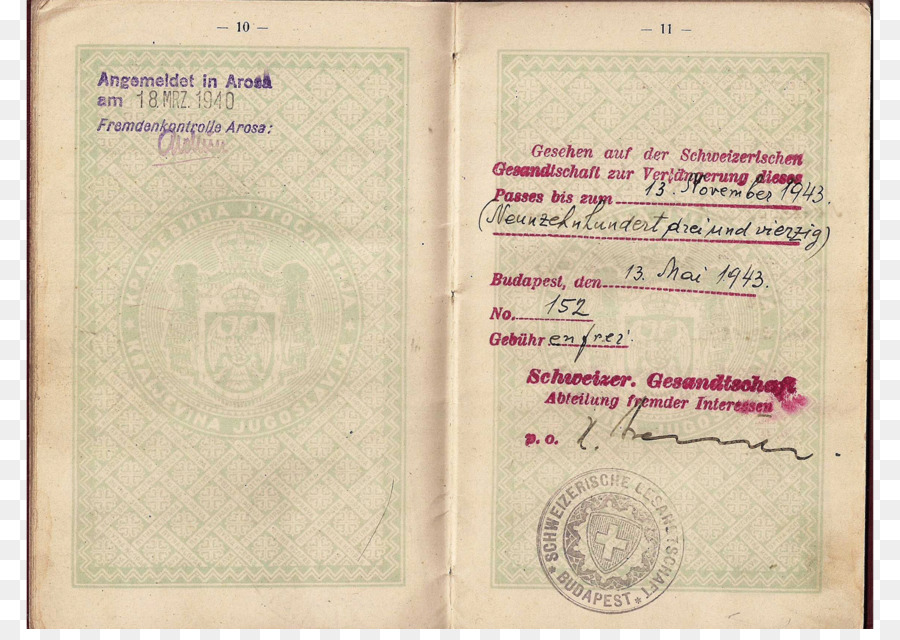 — 10 —
Angemeldet in Arosa
am 18. MRZ. 1940
Fremdenkontrolle Arosa:
КРАЉЕВИНА ЈУГОСЛАВИЈА
KRALJEVINA JUGO
— 11 —
Gesehen auf der Schweizerischen
Gesandtschaft zur Verlängerung dieses
Passes bis zum 13. November 1943.
(Neunzehnhundert drei und vierzig)
Budapest, den 13. Mai 1943.
No. 152
Gebühr enfrei.
Schweizer. Gesandtschaft
Abteilung fremder Interessen
p. o.
SCHWEIZERISCHE GESANDTSCHAFT
* BUDAPEST *